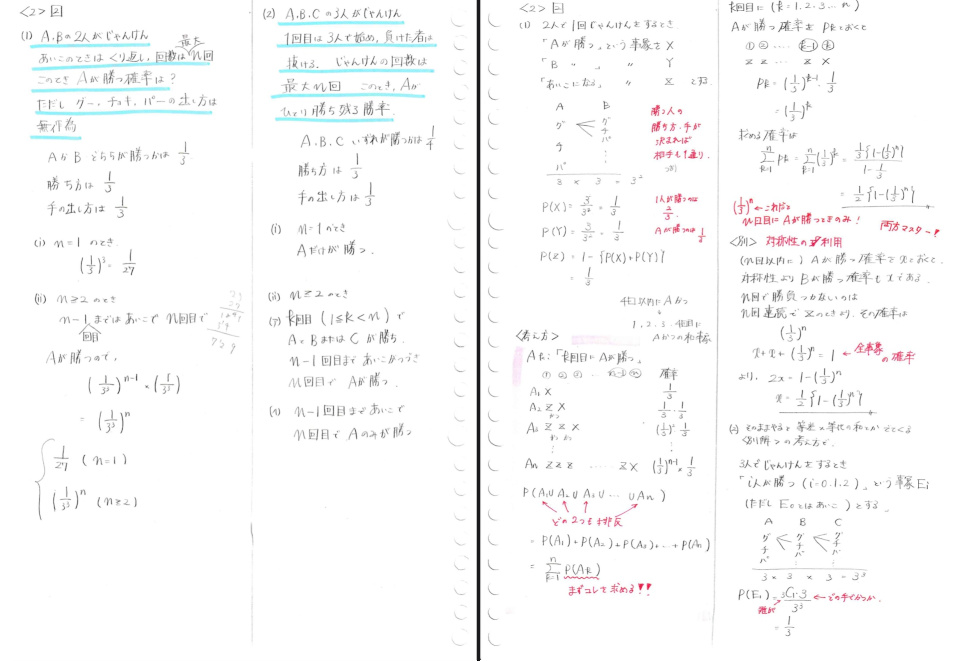 <2> 2
(1) A,Bの2人がじゃんけん
あいこのときはくり返し,回数は最大n回
このときAが勝つ確率は?
ただし グー,チョキ,パーの出し方は
無作為
AかB どちらが勝つかは 1/3
勝ち方は 1/3
手の出し方は 1/3
(i) n=1 のとき
(1/3)^3 = 1/27
(ii) n≧2 のとき
n-1回目まではあいこで n回目で
Aが勝つので,
(1/3^2)^(n-1) × (1/3^3)
= (1/3^3)^n
1/27 (n=1)
(1/3^3)^n (n≧2)
(2) A,B,Cの3人がじゃんけん
1回目は3人で始め,負けた者は
抜ける. じゃんけんの回数は
最大n回 このとき,Aが
ひとり勝ち残る勝率
A,B,C いずれが勝つかは 1/4
勝ち方は 1/3
手の出し方は 1/3
(i) n=1のとき
Aだけが勝つ
(ii) n≧2 のとき
(ア) k回目 (1≦k<n)で
AとBまたはCが勝ち
n-1回目まであいこがつづき
n回目で Aが勝つ.
(イ) n-1回目まであいこで
n回目で Aのみが勝つ
<2> 2
(1) 2人で1回じゃんけんをするとき
「Aが勝つ」という事象を X
「B 〃 」 〃 Y
「あいこになる」 〃 Z とする
A B
グ グ
チ チ
パ パ
3 × 3 = 3^2
勝つ人の
勝ち方,手が
決まれば
相手も1通り.
P(X) = 3/3^2 = 1/3
P(Y) = 3/3^2 = 1/3
P(Z) = 1 - {P(X)+P(Y)}
= 1/3
1人が勝つのは
2/3
Aが勝つのは 1/3
4回以内にAかつ
1,2,3,4回目に
Aかつの和事象
<考え方>
Ak:「k回目にAが勝つ」
① ② ③ … n-1 n 確率
A1 X 1/3
A2 Z X 1/3・1/3
A3 Z Z X (1/3)^2・1/3
An Z Z Z …… Z X (1/3)^(n-1)・1/3
P(A1∪A2∪A3∪…∪An)
どの2つも排反
= P(A1)+P(A2)+P(A3)+…+P(An)
= Σ[k=1,n] P(Ak)
まずコレを求める!!
k回目に (k=1,2,3…n)
Aが勝つ確率を Pkとおくと
① ② … k-1 k
Z Z Z X
Pk = (1/3)^(k-1)・1/3
= (1/3)^k
求める確率は
Σ[k=1,n] Pk = Σ[k=1,n] (1/3)^k = 1/3{1-(1/3)^n} / 1-1/3
= 1/2{1-(1/3)^n}
(1/3)^n ←これだと
n回目にAが勝つときのみ!
両方マスター!
<別> 対称性の利用
(n回以内に) Aが勝つ確率をxとおくと,
対称性より Bが勝つ確率もxである
n回で勝負つかないのは
n回連続で Zのときより,その確率は
(1/3)^n
x+x+(1/3)^n = 1 ←全事象の確率
より, 2x = 1-(1/3)^n
x = 1/2{1-(1/3)^n}
(2) そのままやると 等差×等比の和とかでてくる
<別解>の考え方で.
3人でじゃんけんをするとき
「i人が勝つ (i=0,1,2)」という事象Ei
(ただし E0とはあいこ) とする
A B C
グ グ グ
チ チ チ
パ パ パ
3 × 3 × 3 = 3^3
P(E1) = 3C1・3/3^3 ←どの手でかつか.
誰が
= 1/3